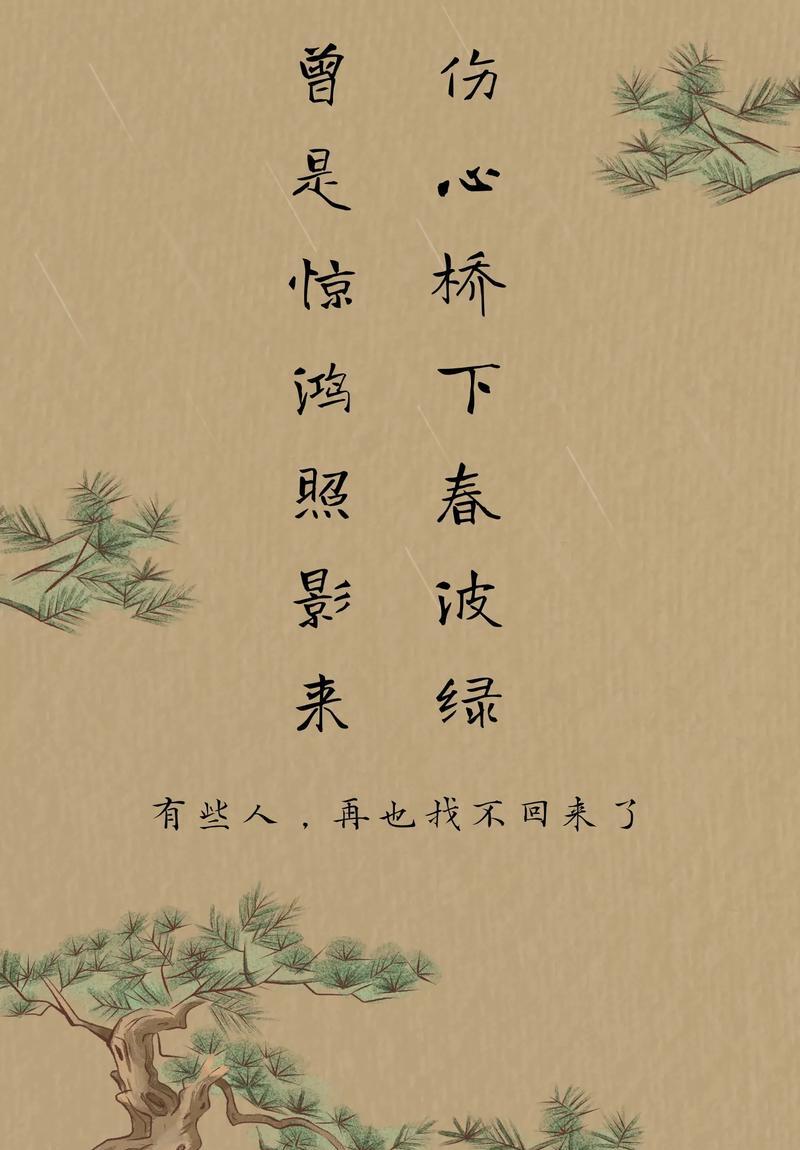 伤心桥下春波绿
曾是惊鸿照影来
有些人，再也找不回来了